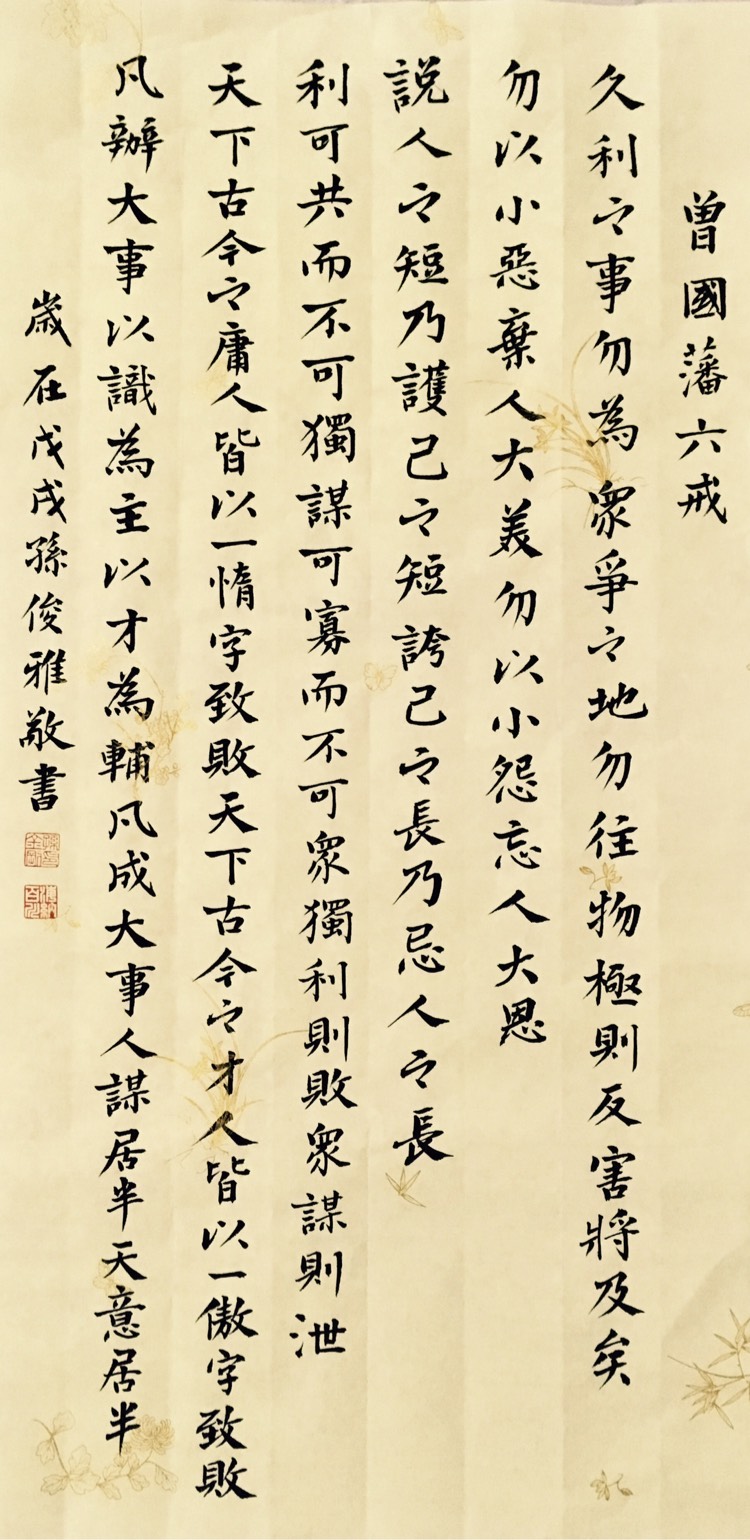 曾國藩六戒
久利之事勿為衆爭之地勿往物極則反害將及矣
勿以小惡棄人大美勿以小怨忘人大恩
説人之短乃護己之短誇己之長乃忌人之長
利可共而不可獨謀可寡而不可衆獨利則敗衆謀則泄
天下古今之庸人皆以一惰字致敗天下古今之才人皆以一傲字致敗
凡辦大事以識為主以才為輔凡成大事人謀居半天意居半
歲在戊戌孫俊雅敬書